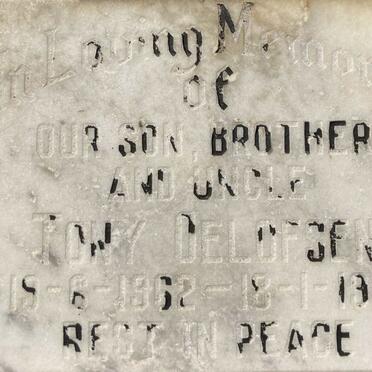 In Loving Memory
of
OUR SON, BROTHER
AND UNCLE
TONY OELOFSEN
19-6-1962 - 18-1-19
REST IN PEACE